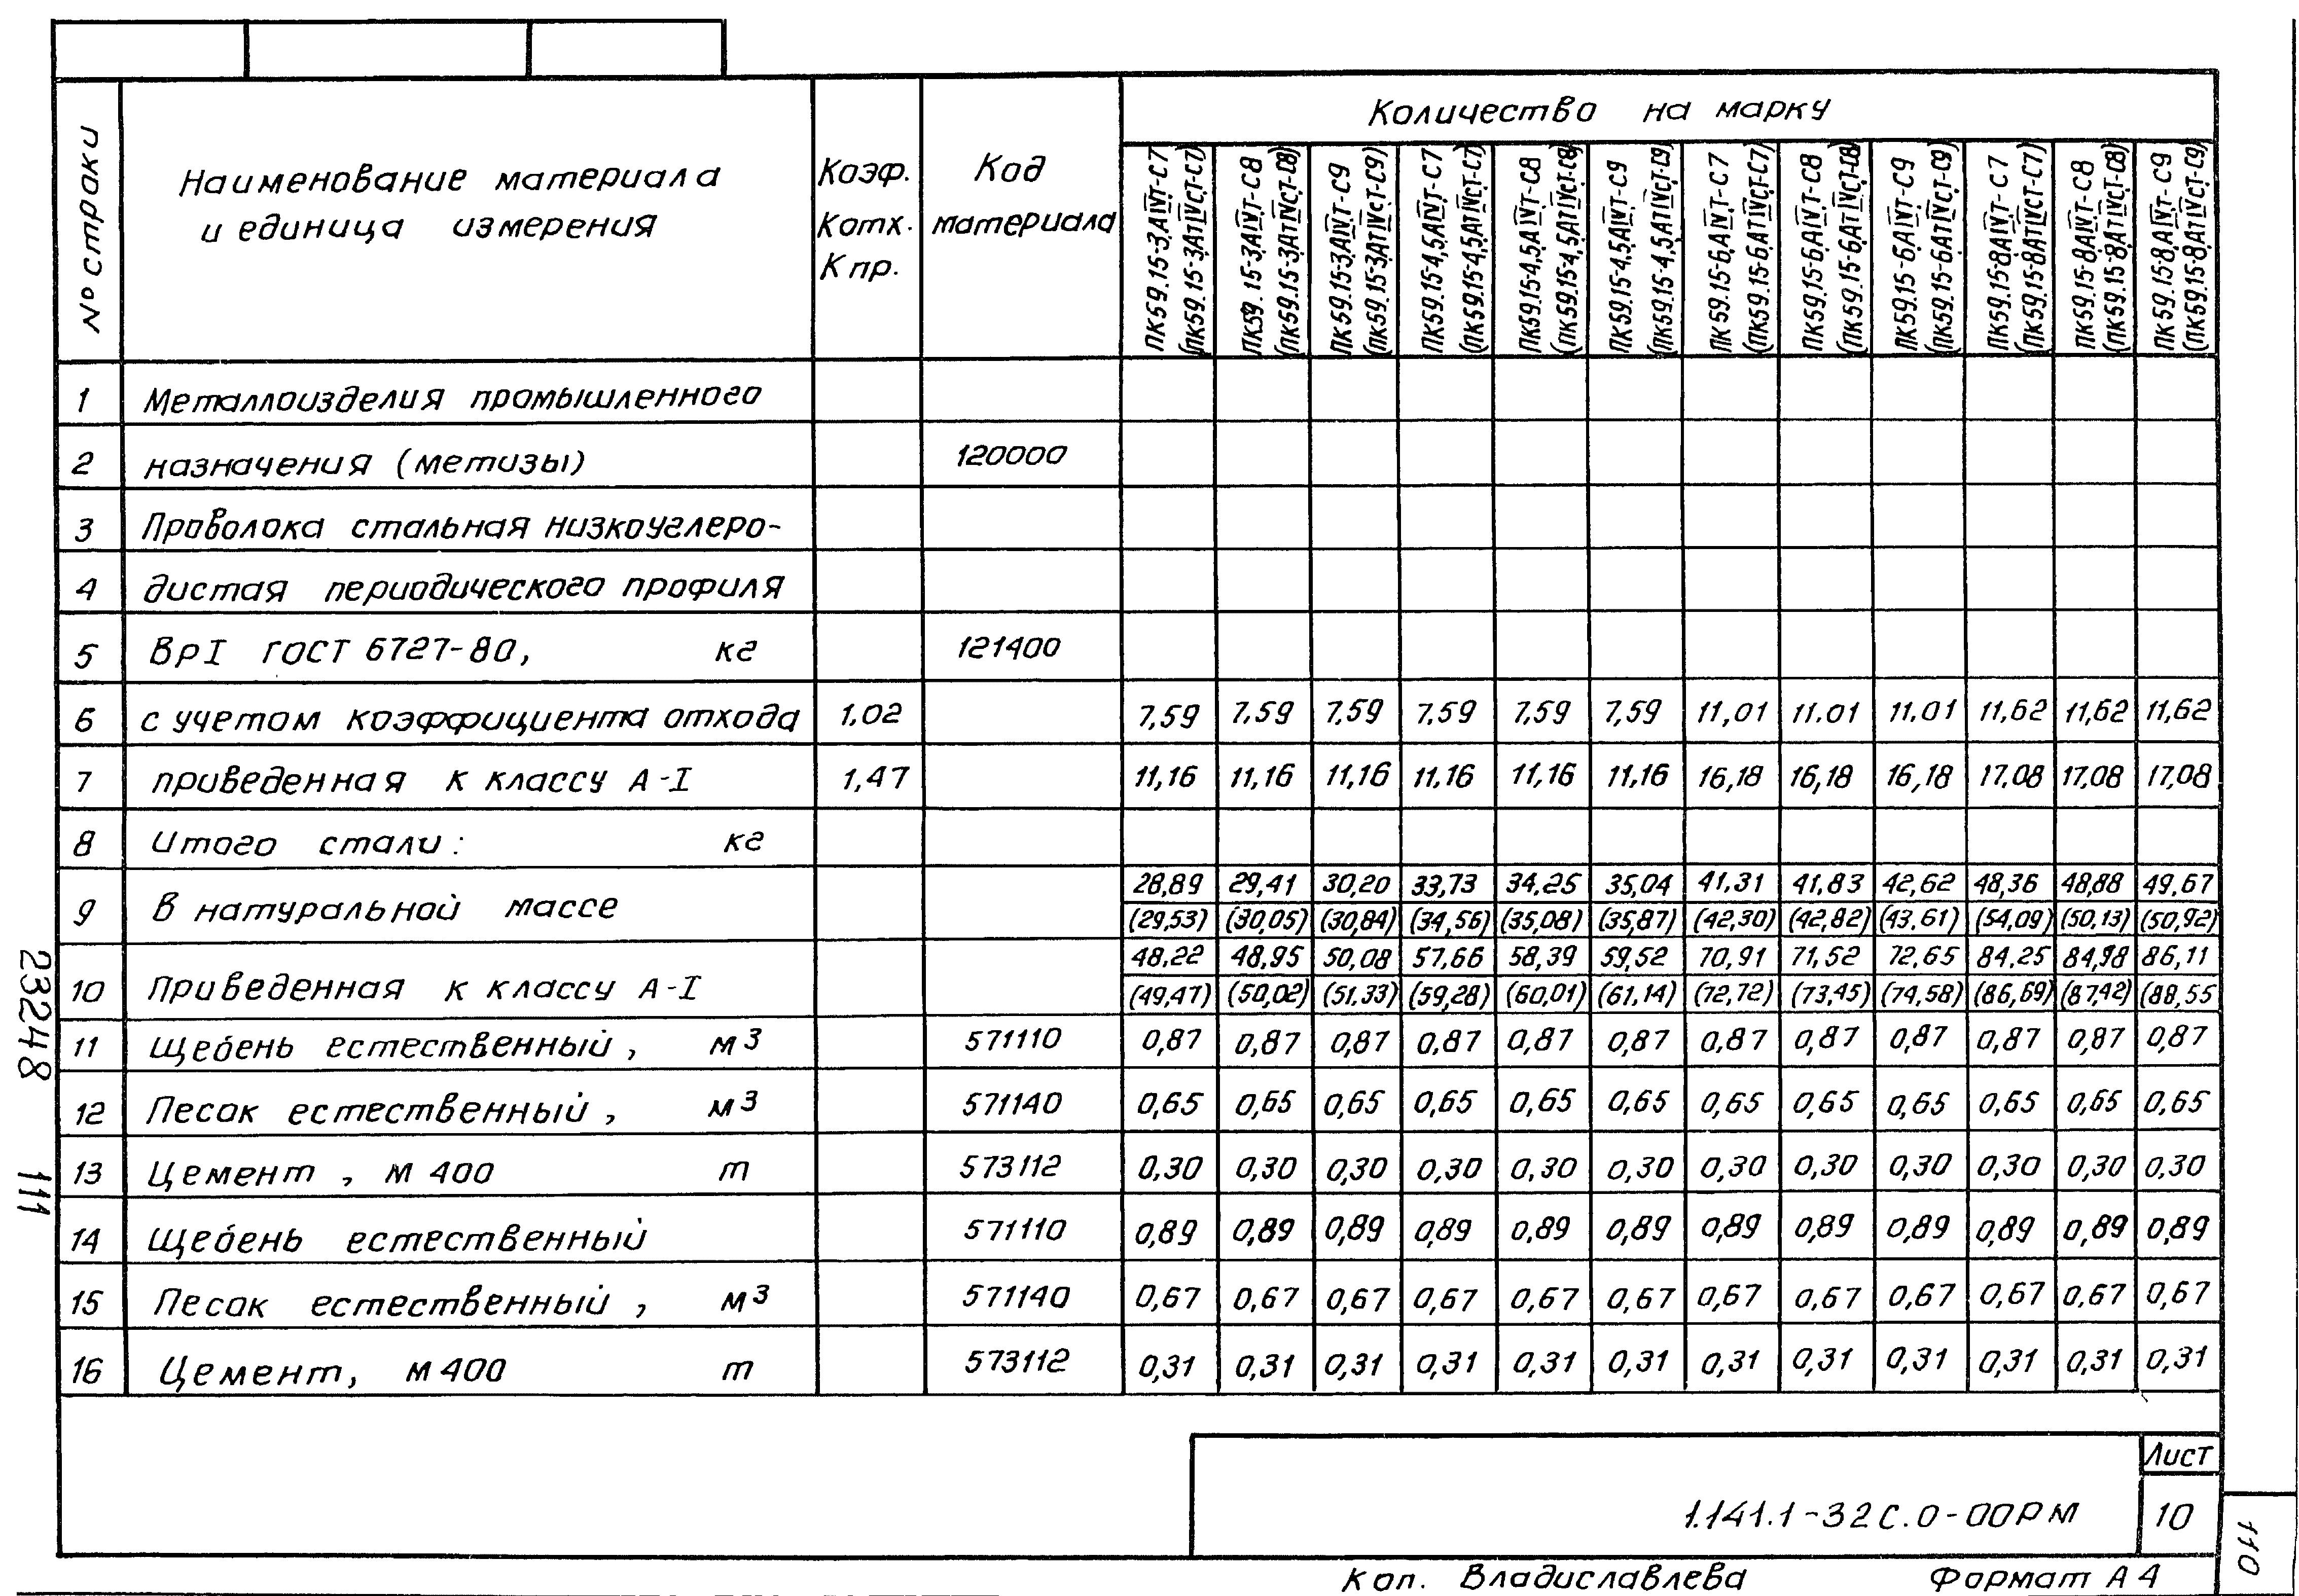 Количество на марку
№ строки
Наименование материала
и единица измерения
Коэф.
Котх.
Кпр.
Код
материала
ПК59.15-3АIVТ-С7
(ПК59.15-3АТIVСТ-С7)
ПК59.15-3АIVТ-С8
(ПК59.15-3АТIVСТ-С8)
ПК59.15-3АIVТ-С9
(ПК59.15-3АТIVСТ-С9)
ПК59.15-4,5АIVТ-С7
(ПК59.15-4,5АТIVСТ-С7)
ПК59.15-4,5АIVТ-С8
(ПК59.15-4,5АТIVСТ-С8)
ПК59.15-4,5АIVТ-С9
(ПК59.15-4,5АТIVСТ-С9)
ПК59.15-6АIVТ-С7
(ПК59.15-6АТIVСТ-С7)
ПК59.15-6АIVТ-С8
(ПК59.15-6АТIVСТ-С8)
ПК59.15-6АIVТ-С9
(ПК59.15-6АТIVСТ-С9)
ПК59.15-8АIVТ-С7
(ПК59.15-8АТIVСТ-С7)
ПК59.15-8АIVТ-С8
(ПК59.15-8АТIVСТ-С8)
ПК59.15-8АIVТ-С9
(ПК59.15-8АТIVСТ-С9)
1 Металлоизделия промышленного
2 назначения (метизы) 120000
3 Проволока стальная низкоуглеро-
4 дистая периодического профиля
5 ВрI ГОСТ 6727-80, кг 121400
6 с учетом коэффициента отхода 1,02 7,59 7,59 7,59 7,59 7,59 7,59 11,01 11.01 11.01 11,62 11,62 11,62
7 приведенная к классу А-I 1,47 11,16 11,16 11,16 11,16 11,16 11,16 16,18 16,18 16,18 17,08 17,08 17,08
8 Итого стали: кг
28,89 29,41 30,20 33,73 34,25 35,04 41,31 41,83 42,62 48,36 48,88 49,67
9 в натуральной массе
(29,53) (30,05) (30,84) (34,56) (35,08) (35,87) (42,30) (42,82) (43,61) (54,09) (50,13) (50,92)
48,22 48,95 50,08 57,66 58,39 59,52 70,91 71,52 72,65 84,25 84,98 86,11
10 Приведенная к классу А-I
(49,47) (50,02) (51,33) (59,28) (60,01) (61,14) (72,72) (73,45) (74,58) (86,69) (87,42) (88,55
11 Щебень естественный, м3 571110 0,87 0,87 0,87 0,87 0,87 0,87 0,87 0,87 0,87 0,87 0,87 0,87
12 Песок естественный, м3 571140 0,65 0,65 0,65 0,65 0,65 0,65 0,65 0,65 0,65 0,65 0,65 0,65
13 Цемент, М 400 т 573112 0,30 0,30 0,30 0,30 0,30 0,30 0,30 0,30 0,30 0,30 0,30 0,30
14 Щебень естественный 571110 0,89 0,89 0,89 0,89 0,89 0,89 0,89 0,89 0,89 0,89 0,89 0,89
15 Песок естественный, м3 571140 0,67 0,67 0,67 0,67 0,67 0,67 0,67 0,67 0,67 0,67 0,67 0,67
16 Цемент, М400 т 573112 0,31 0,31 0,31 0,31 0,31 0,31 0,31 0,31 0,31 0,31 0,31 0,31
23248 111
1.141.1-32С.0-00РМ
Лист
10
110
Коп. Владиславлева Формат А4